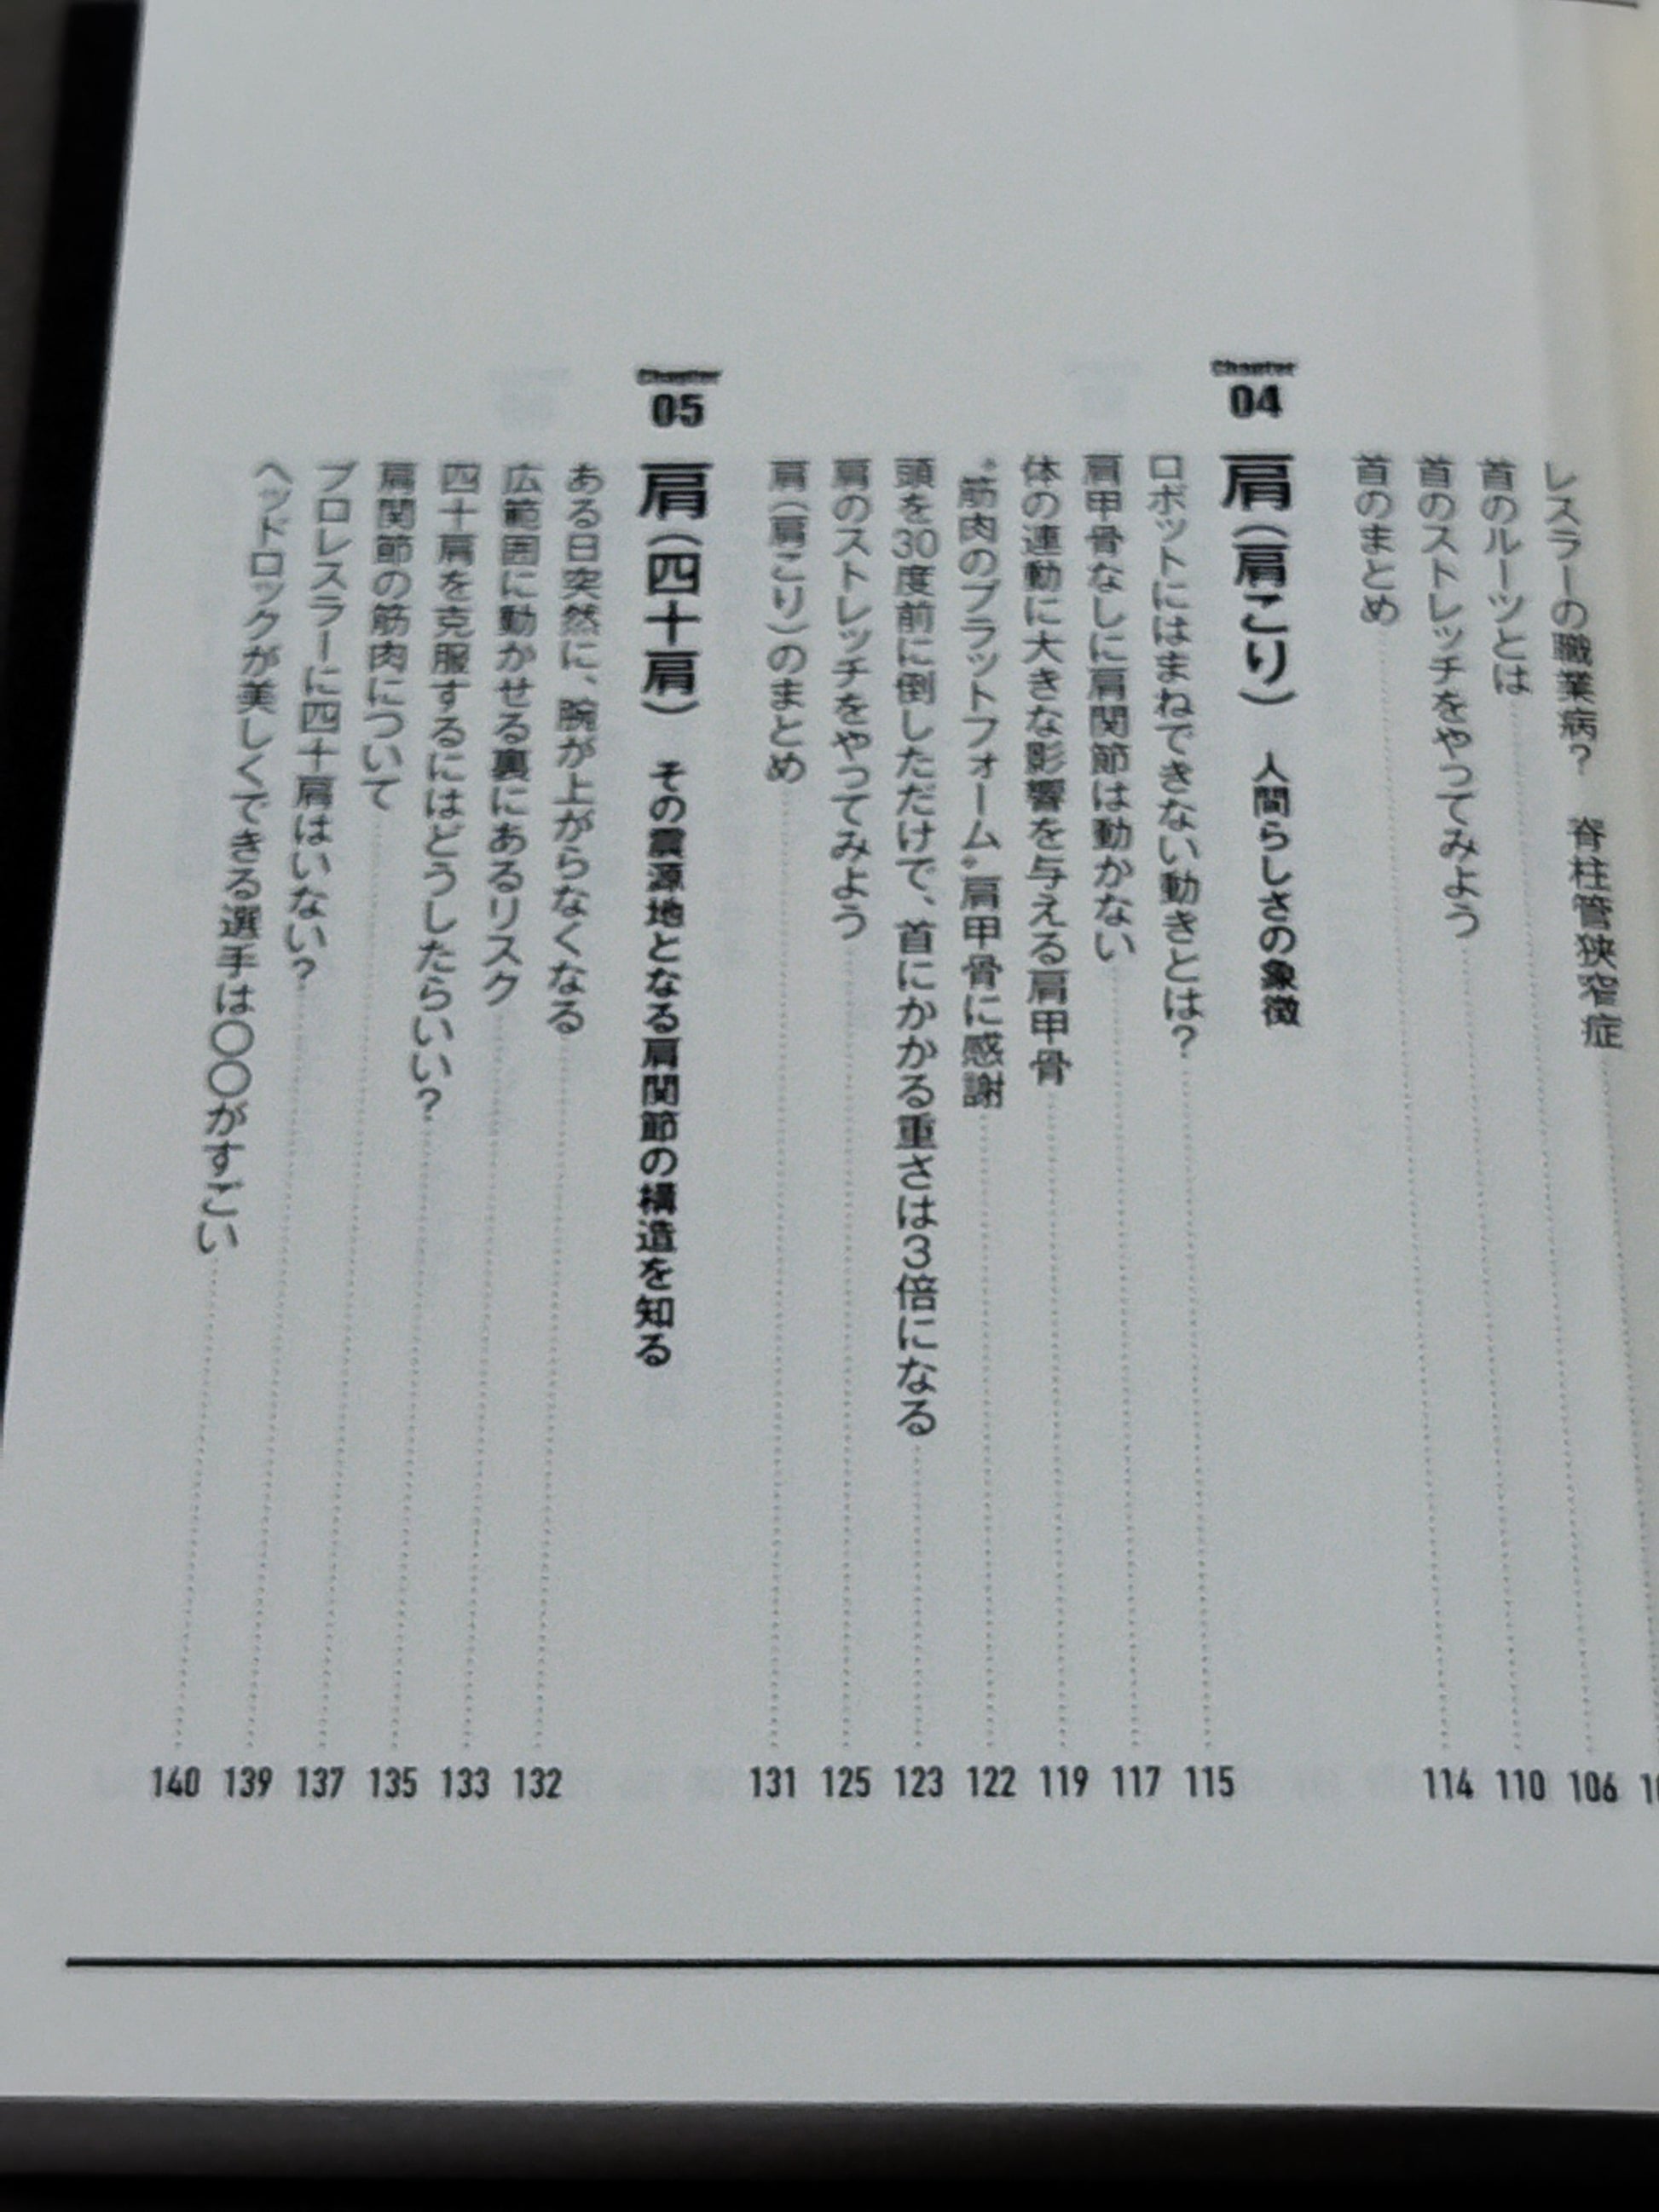 レスラーの職業病? 脊柱管狭窄症
首のルーツとは 106
首のストレッチをやってみよう 110
首のまとめ 114
Chapter
04
肩(肩こり) 人間らしさの象徴
ロボットにはまねできない動きとは? 115
肩甲骨なしに肩関節は動かない 117
体の連動に大きな影響を与える肩甲骨 119
“筋肉のプラットフォーム”肩甲骨に感謝 122
頭を30度前に倒しただけで、首にかかる重さは3倍になる 123
肩のストレッチをやってみよう 125
肩(肩こり)のまとめ 131
Chapter
05
肩(四十肩) その震源地となる肩関節の構造を知る
ある日突然に、腕が上がらなくなる 132
広範囲に動かせる裏にあるリスク 133
四十肩を克服するにはどうしたらいい? 135
肩関節の筋肉について 137
プロレスラーに四十肩はいない? 139
ヘッドロックが美しくできる選手は〇〇がすごい 140